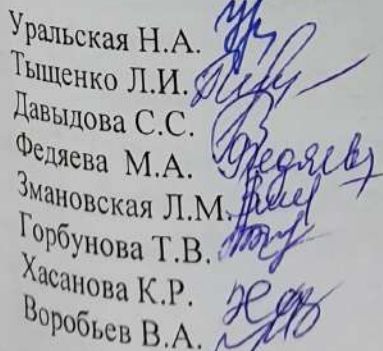 Уральская Н.А.
Тыщенко Л.И.
Давыдова С.С.
Федяева М.А. Федяева
Змановская Л.М.
Горбунова Т.В.
Хасанова К.Р.
Воробьев В.А.